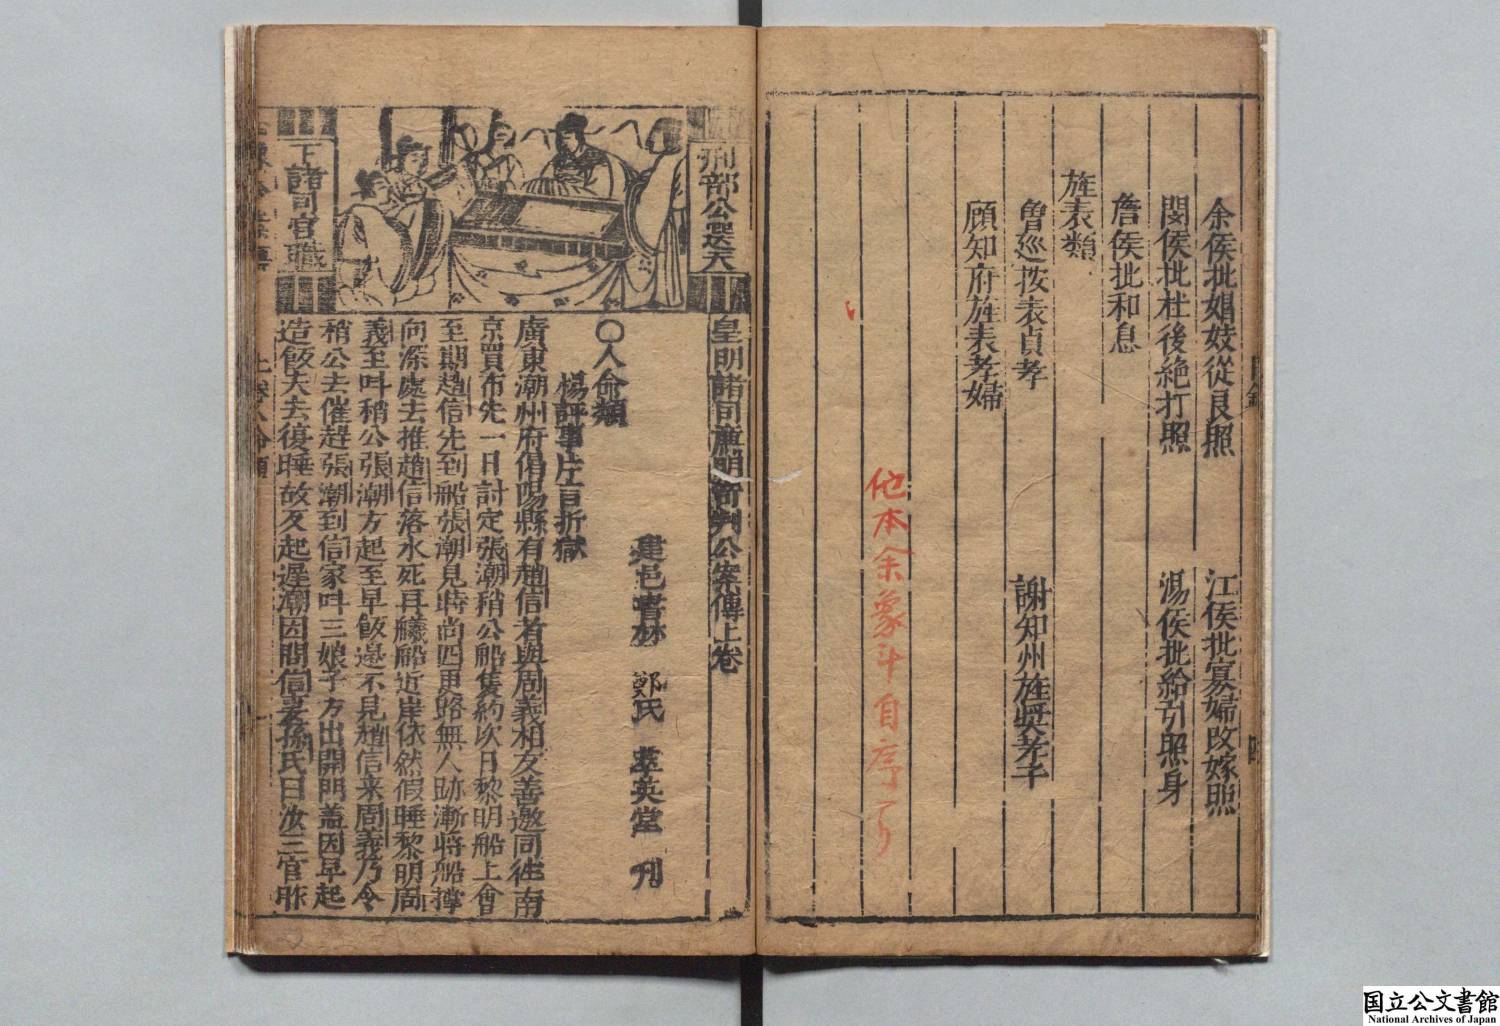 余侯批娼妓從良照
江侯批寡婦改嫁照
閔侯批杜後絶打照
湯侯批給引照身
詹侯批和息
旌表類
魯巡按表貞孝
謝知州旌奬孝子
顧知府旌表孝婦
他本余象斗自序了
刑部公選天
下諸司官職
皇明諸司廉明奇判公案傳上卷
建邑書林 鄭氏 萃英堂 刊
○人命類
楊評事片言折獄
廣東潮州府倡陽縣有趙信者與周義相友善邀同往南
京買布先一日討定張潮稍公船隻約次日黎明船上會
至期趙信先到船張潮見時尚四更路無人跡漸將船撐
向深處去推趙信落水死耳艤船近岸依然假睡黎明周
義至叫稍公張潮方起至早飯邊不見趙信来周義乃令
稍公去催趕張潮到信家叫三娘子方出開門蓋因早起
造飯夫去復睡故反起遲潮因問信妻孫氏曰汝三官昨
國立公文書館
National Archives of Japan